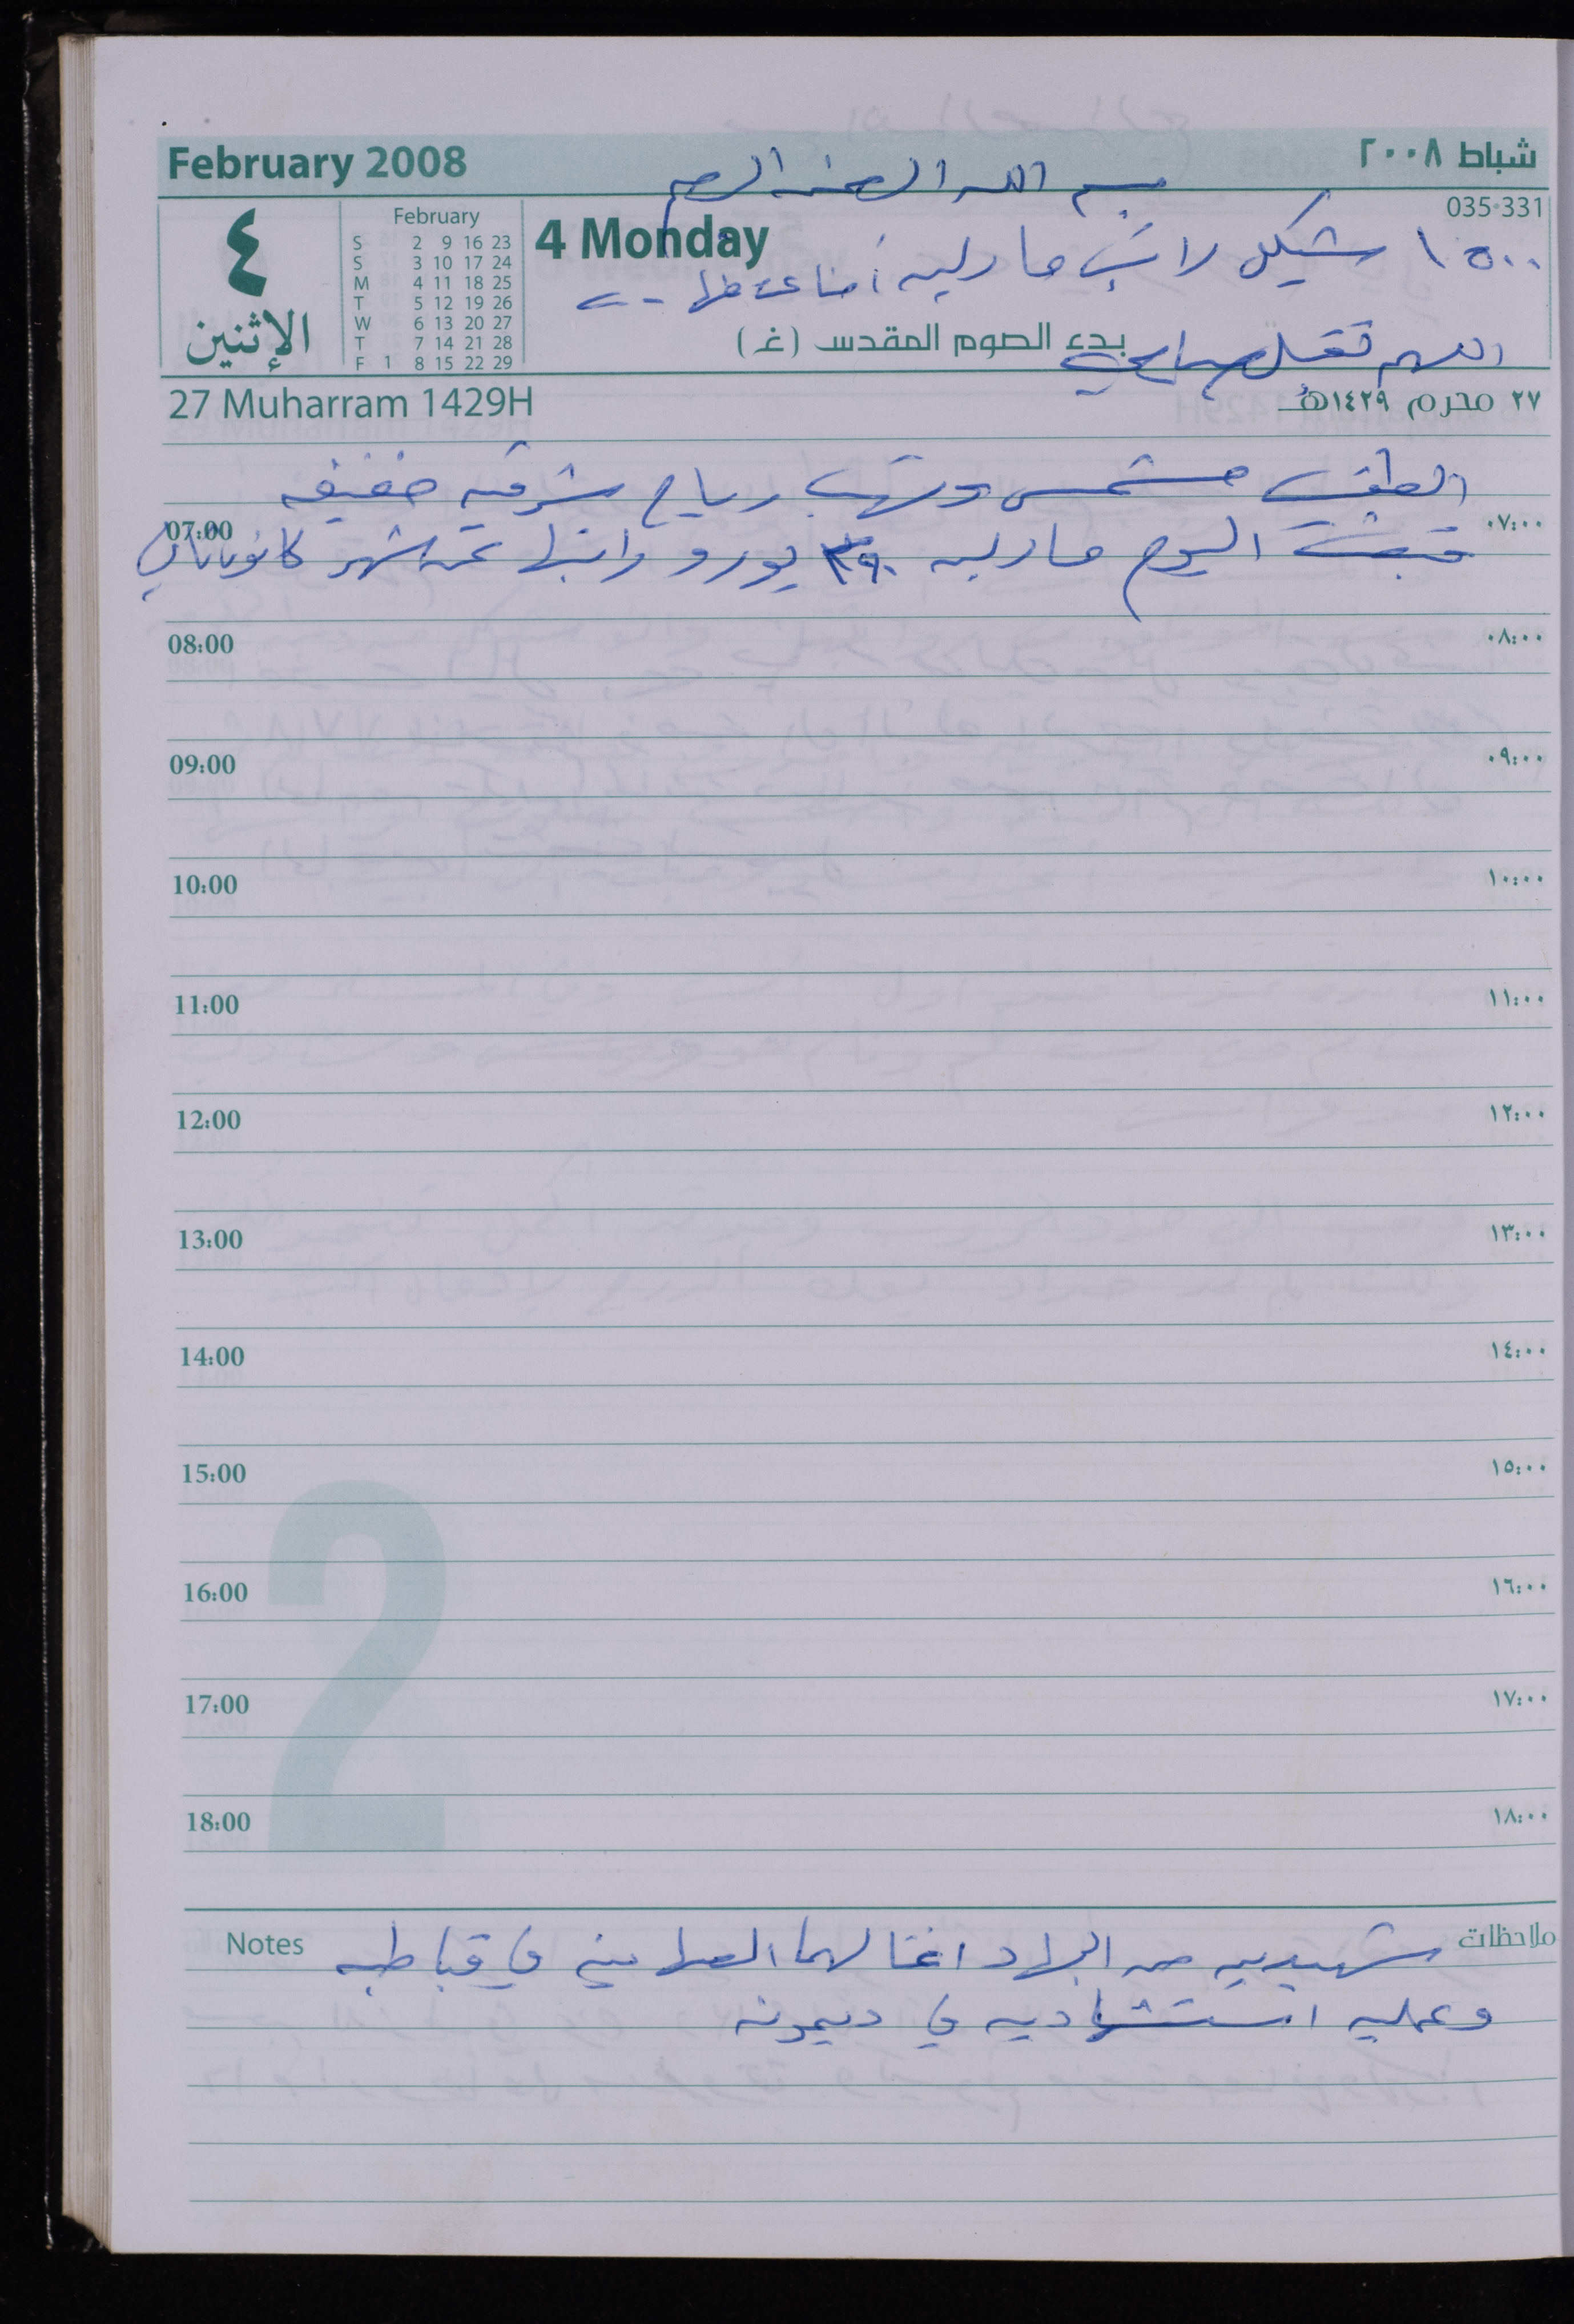 February 2008
شباط ٢٠٠٨
بسم الله الرحمن الرحيم
035-331
٤
الإثنين
February
S 2 9 16 23
S 3 10 17 24
M 4 11 18 25
T 5 12 19 26
W 6 13 20 27
T 7 14 21 28
F 1 8 15 22 29
4 Monday
١٥٠٠ شيكل راتب ماريه
بدء الصوم المقدس (غ)
اللهم تقبل
27 Muharram 1429H
٢٧ محرم ١٤٢٩هـ
الطقس مشمس وتهب رياح شرقيه خفيفه
07:00 ٠٧:٠٠
قبضت اليوم ماريه ٣٩٠ يورو راتبها عن شهر كانون ثاني
08:00 ٠٨:٠٠
09:00 ٠٩:٠٠
10:00 ١٠:٠٠
11:00 ١١:٠٠
12:00 ١٢:٠٠
13:00 ١٣:٠٠
14:00 ١٤:٠٠
15:00 ١٥:٠٠
16:00 ١٦:٠٠
17:00 ١٧:٠٠
18:00 ١٨:٠٠
2
Notes ملاحظات
شهيدين من اغتالهما في قباطيه
وعمليه استشهاديه في ديمونه